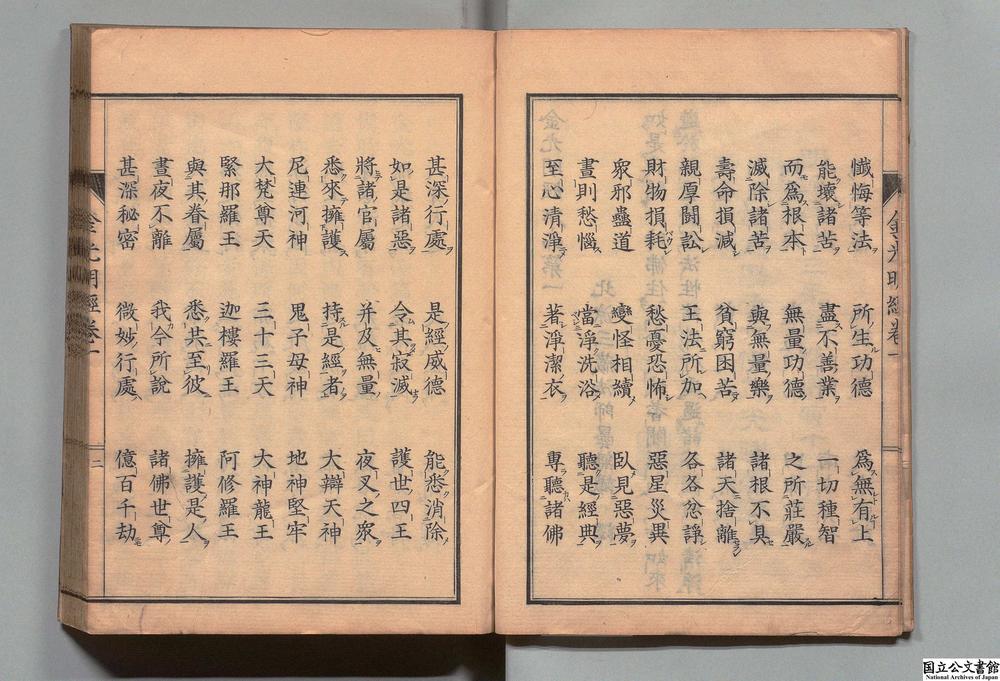 懺悔等法 所生功德 爲無有上
能壞諸苦 盡不善業 一切種智
而爲根本 無量功德 之所莊嚴
滅除諸苦 與無量樂 諸根不具
壽命損減 貧窮困苦 諸天捨離
親厚鬪訟 王法所加 各各忿諍
財物損耗 愁憂恐怖 惡星災異
衆邪蠱道 變怪相續 臥見惡夢
晝則愁惱 當淨洗浴 聽是經典
至心清淨 著淨潔衣 專聽諸佛
金光明經卷一
甚深行處 是經威德 能悉消除
如是諸惡 令其寂滅 護世四王
將諸官屬 并及無量 夜叉之衆
悉來擁護 持是經者 大辯天神
尼連河神 鬼子母神 地神堅牢
大梵尊天 三十三天 大神龍王
緊那羅王 迦樓羅王 阿修羅王
與其眷屬 悉共至彼 擁護是人
晝夜不離 我今所說 諸佛世尊
甚深秘密 微妙行處 億百千劫
金光明經卷一 二
国立公文書館
National Archives of Japan